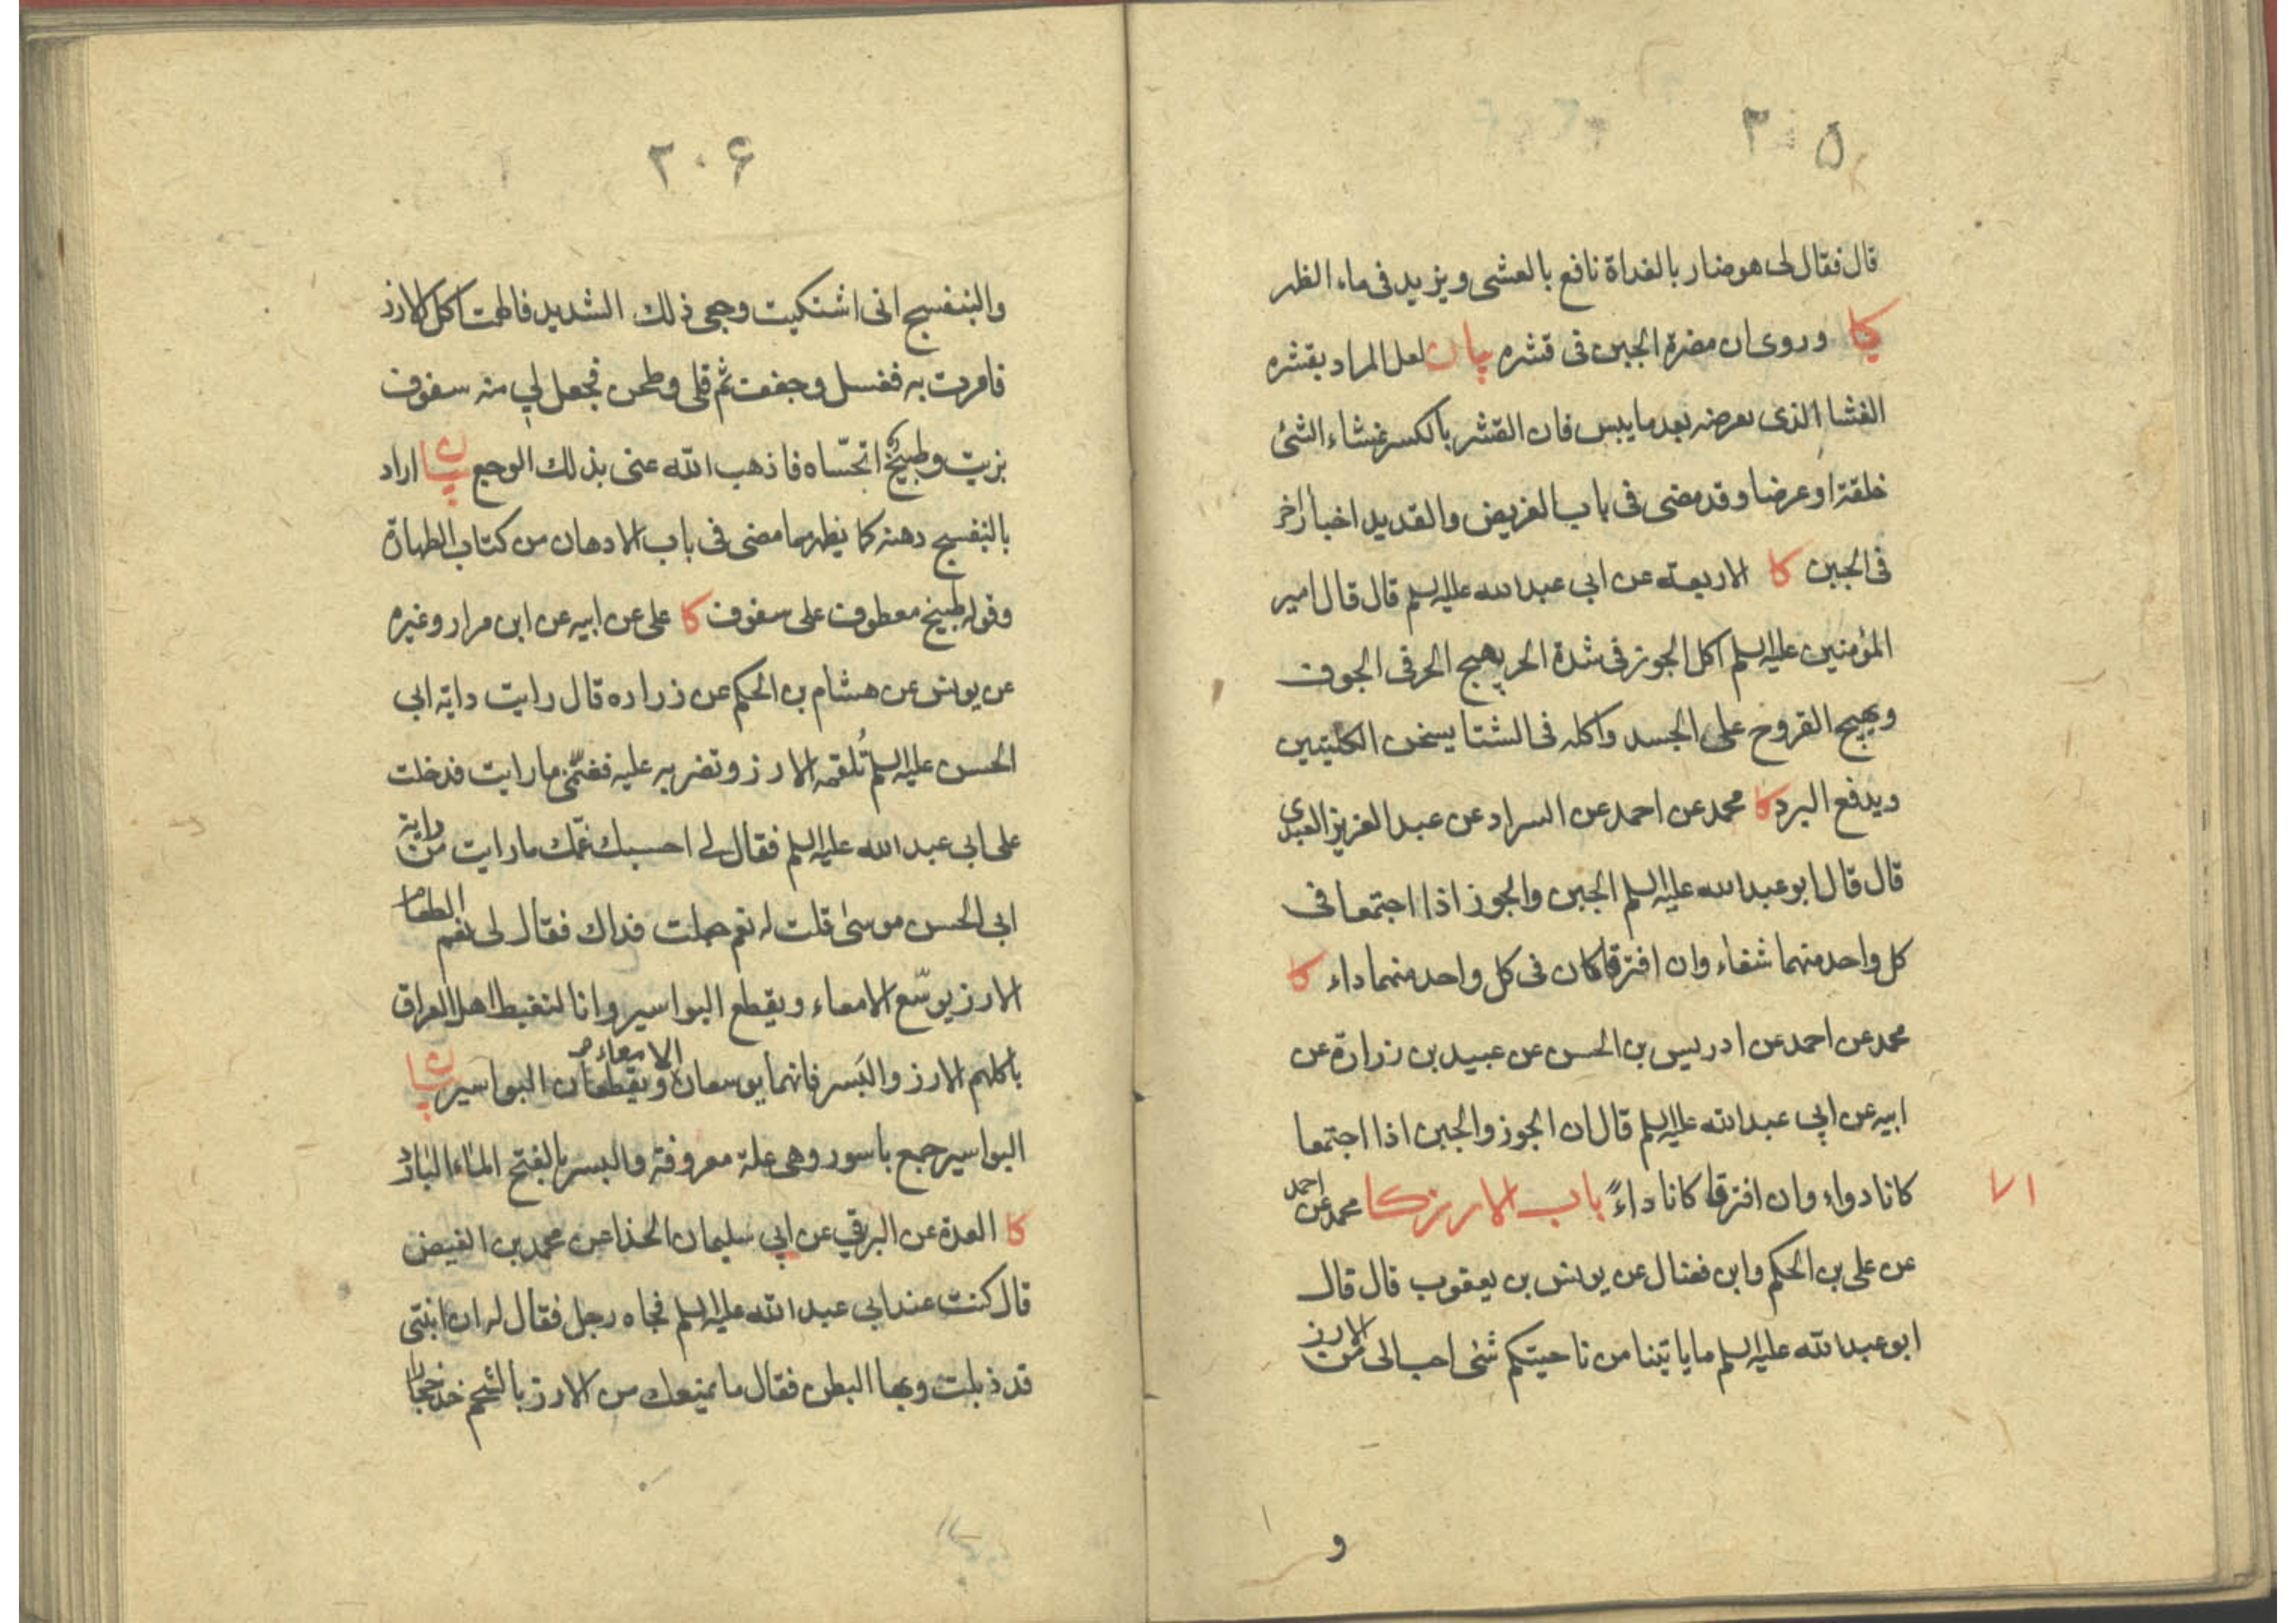 ٢٠٥
قال فقال لى هو ضار بالغداة نافع بالعشى ويزيد فى ماء الظهر
كا وروى ان مضرة الجبن فى قشره بيان لعل المراد بقشره
الغشا الذى يعرضه بعد ما ييبس فان القشر بالكسر غشاء الشئ
خلقة او عرضا وقد مضى فى باب الغريض والقديد اخبار اخر
فى الجبن كا الاربعة عن ابي عبد الله عليه السلم قال قال امير
المؤمنين عليه السلم اكل الجوز فى شدة الحر يهيج الحر فى الجوف
ويهيج القروح على الجسد واكله فى الشتا يسخن الكليتين
ويدفع البرد كا محمد عن احمد عن السراد عن عبد العزيز العبدى
قال قال ابو عبد الله عليه السلم الجبن والجوز اذا اجتمعا فى
كل واحد منهما شفاء وان افترقا كان فى كل واحد منهما داء كا
محمد عن احمد عن ادريس بن الحسن عن عبيد بن زرارة عن
ابيه عن ابي عبد الله عليه السلم قال ان الجوز والجبن اذا اجتمعا
كانا دواء وان افترقا كانا داءً باب الارز كا محمد عن احمد
٧١
عن على بن الحكم وابن فضال عن يونس بن يعقوب قال قال
ابو عبد الله عليه السلم ما ياتينا من ناحيتكم شئ احب الى من الارز
و
٢٠۶
والبنفسج انى اشتكيت وجعى ذلك الشديد فالهمت اكل الارز
فامرت به فغسل وجفف ثم قلى وطحن فجعل لي منه سفوف
بزيت وطبيخ اتحسّاه فاذهب الله عنى بذلك الوجع بيان اراد
بالبنفسج دهنه كما يظهر مما مضى فى باب الادهان من كتاب الطهارة
وقوله طبيخ معطوف على سفوف كا على عن ابيه عن ابن مرار وغيره
عن يونس عن هشام بن الحكم عن زراره قال رايت داية ابي
الحسن عليه السلم تُلقمه الارز وتضربه عليه فغمّنى ما رايت فدخلت
على ابي عبد الله عليه السلم فقال لى احسبك غمّك ما رايت من داية
ابي الحسن موسى قلت له نعم جعلت فداك فقال لى نعم الطعام
الارز يوسّع الامعاء ويقطع البواسير وانا لنغبط اهل العراق
باكلهم الارز والبَسر فانهما يوسعان الامعاء ويقطعان البواسير بيان
البواسير جمع باسور وهى علة معروفة والبسر بالفتح الماء البارد
كا العدة عن البرقي عن ابي سليمان الحذا عن محمد بن الفيض
قال كنت عند ابي عبد الله عليه السلم فجاه رجل فقال له ان ابنتى
قد ذبلت وبها البطن فقال ما يمنعك من الارز بالشحم خذ حجارا